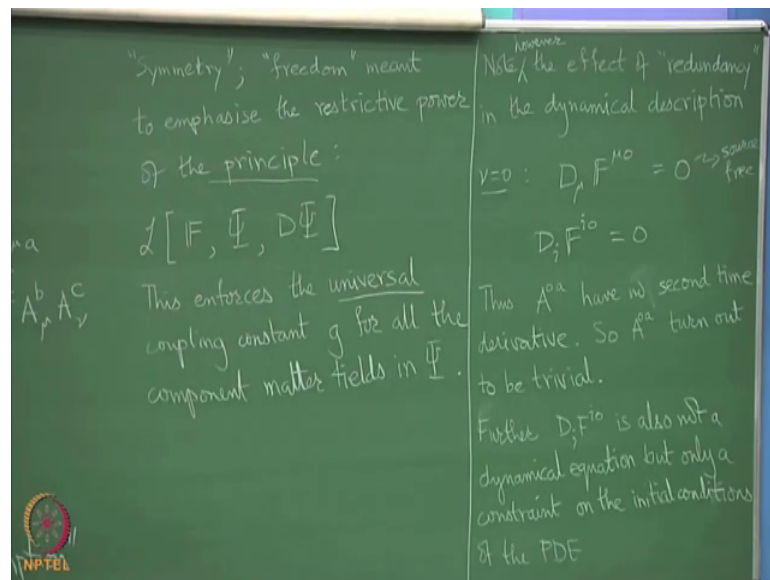 "Symmetry"; "freedom" meant
to emphasise the restrictive power
of the principle:
ℒ[F, Ψ, DΨ]
This enforces the universal
coupling constant g for all the
component matter fields in Ψ.
A_μ^b A_ν^c
however
Note, the effect of "redundancy"
in the dynamical description
ν=0 : D_μ F^{μ0} = 0 → source free
D_i F^{i0} = 0
Thus A^{0a} have no second time
derivative. So A^{0a} turn out
to be trivial.
Further D_i F^{i0} is also not a
dynamical equation but only a
constraint on the initial conditions
of the PDE
NPTEL